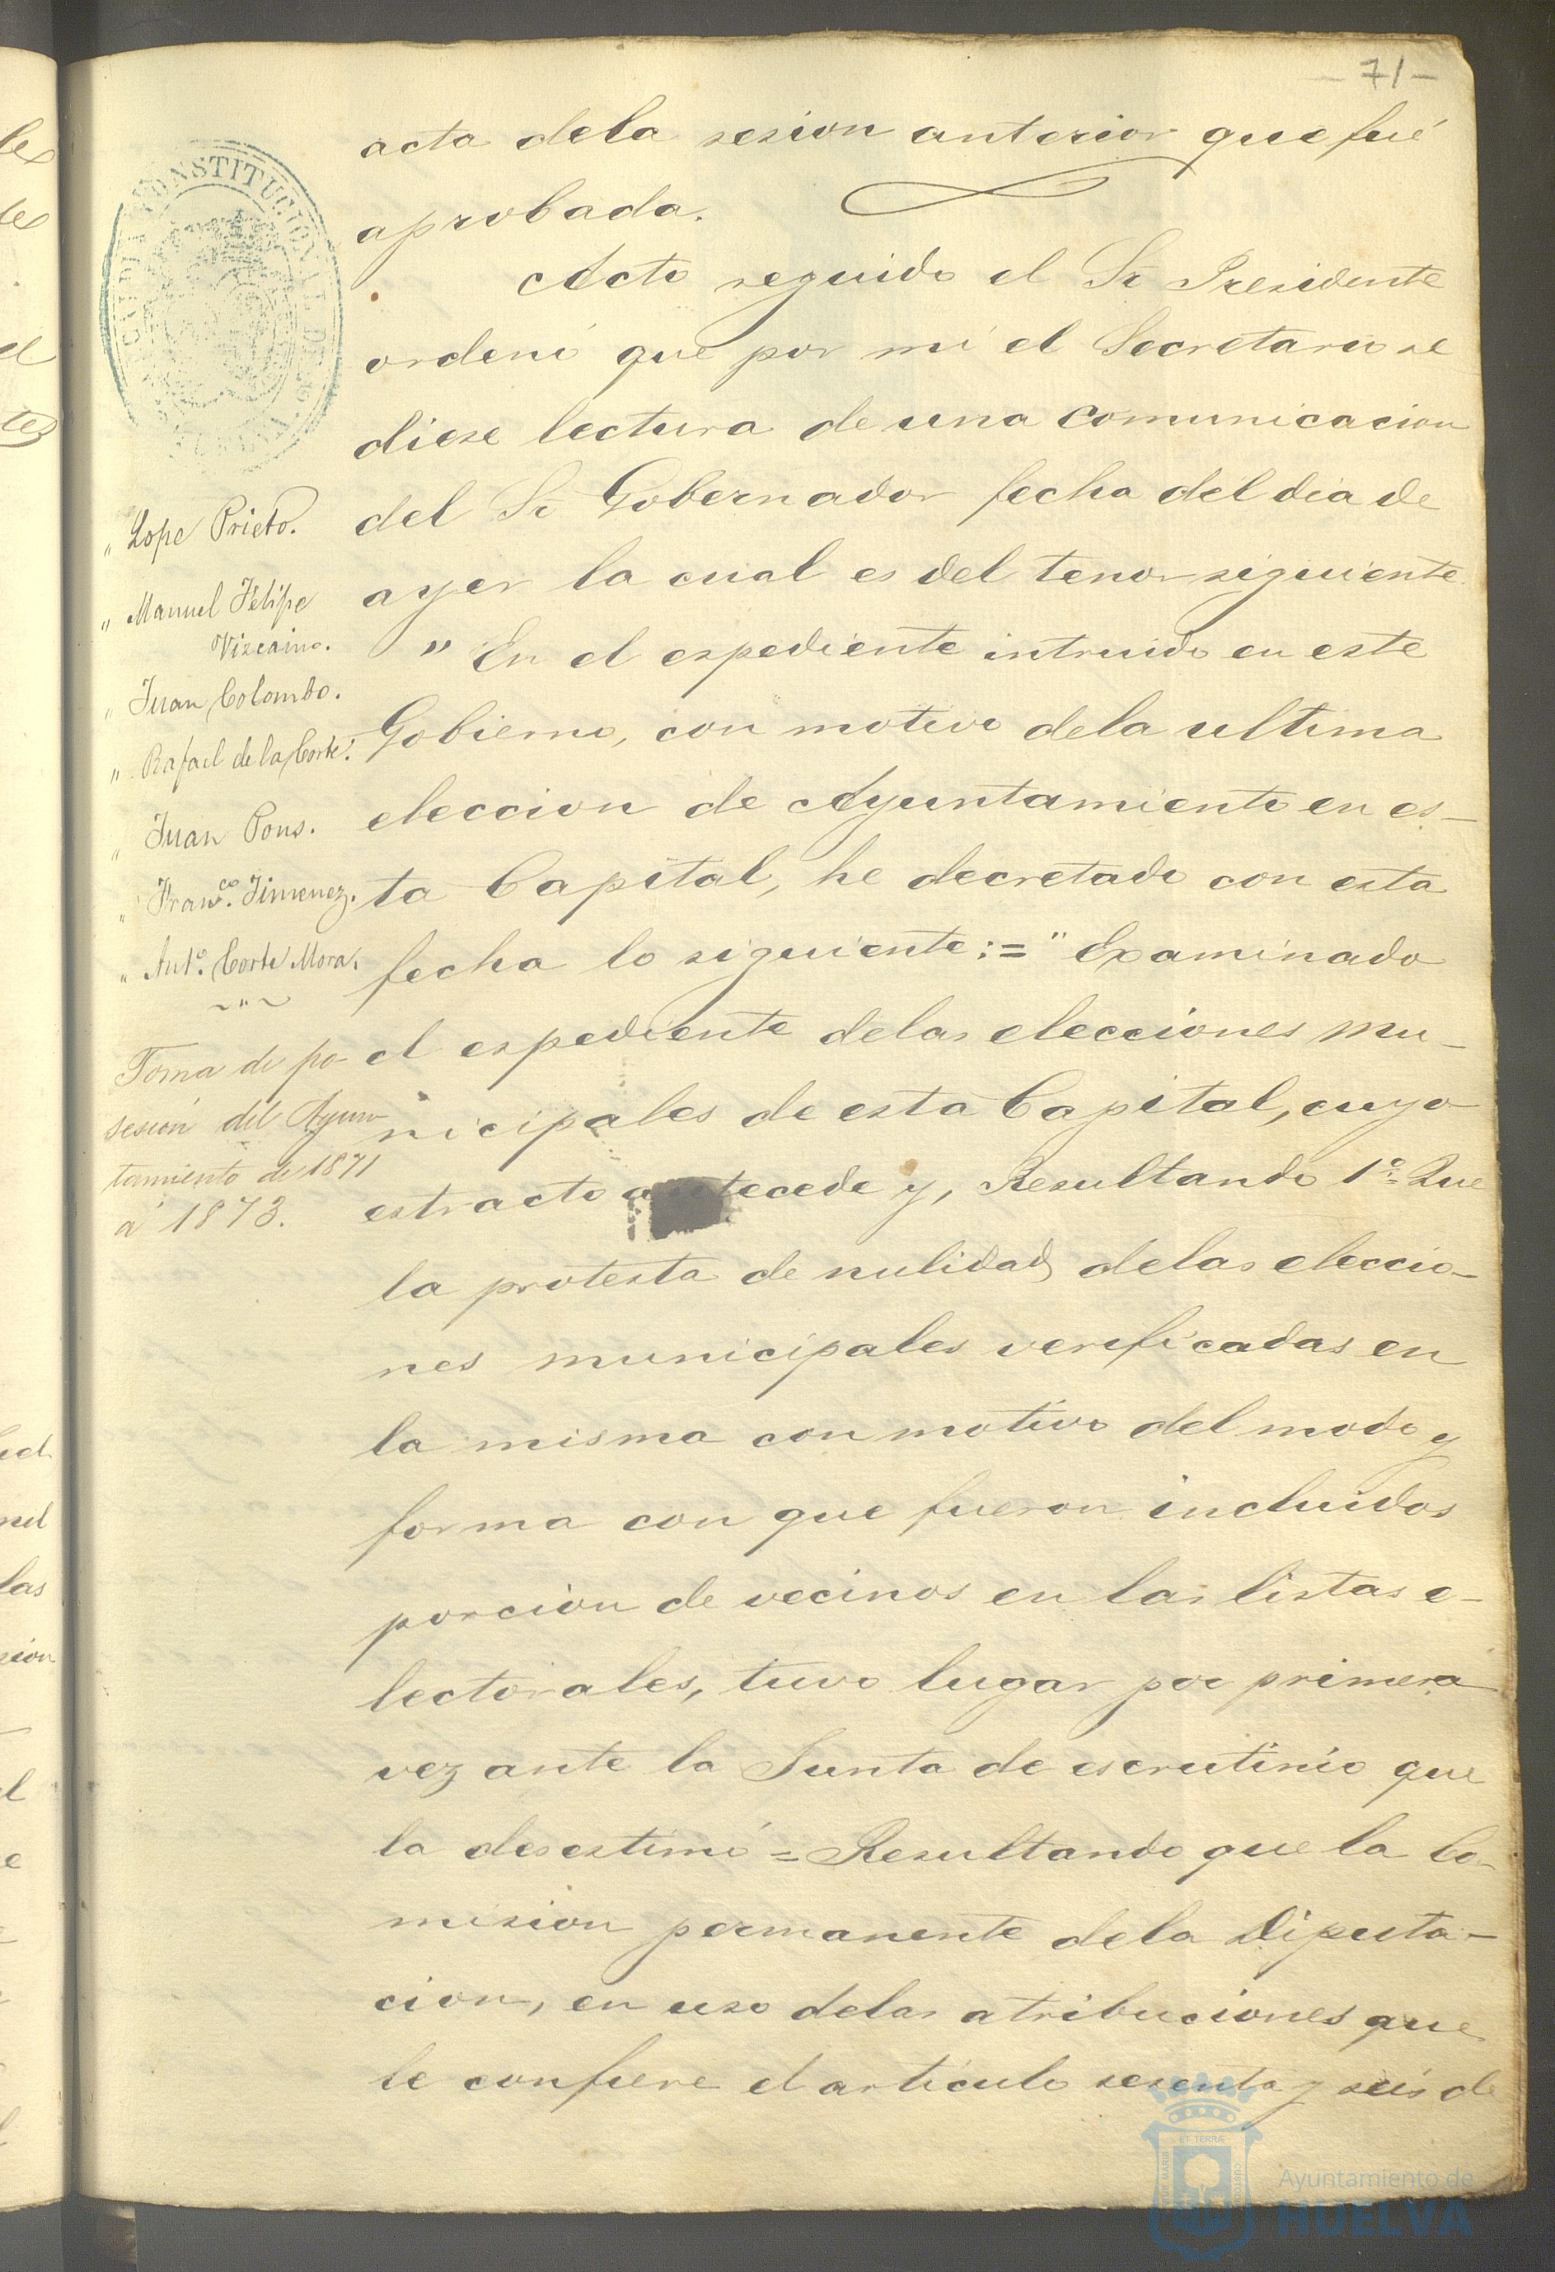 -71-
CONSTITUCIONAL DE
" Lope Prieto.
" Manuel Felipe
Vizcaino.
" Juan Colombo.
" Rafael de la Corte.
" Juan Pons.
" Franco. Jimenez.
" Anto. Corte Mora.
~"~
Toma de po-
sesión del Ayun-
tamiento de 1871
a 1873.
acta dela sesion anterior que fué
aprobada.
Acto seguido el Sr Presidente
ordenó que por mi el Secretario se
diese lectura de una comunicacion
del Sr Gobernador fecha del dia de
ayer la cual es del tenor siguiente.
" En el espediente intruido en este
Gobierno, con motivo dela ultima
eleccion de Ayuntamiento en es-
ta Capital, he decretado con esta
fecha lo siguiente:=" Examinado
el espediente delas elecciones mu-
nicipales de esta Capital, cuyo
estracto antecede y, Resultando 1º= Que
la protesta de nulidad delas eleccio-
nes municipales verificadas en
la misma con motivo del modo y
forma con que fueron incluidos
porcion de vecinos en las listas e-
lectorales, tuvo lugar por primera
vez ante la Junta de escrutinio que
la desestimó = Resultando que la Co-
mision permanente dela Diputa-
cion, en uso delas atribuciones que
le confiere el artículo sesenta y seis de
Ayuntamiento de
HUELVA